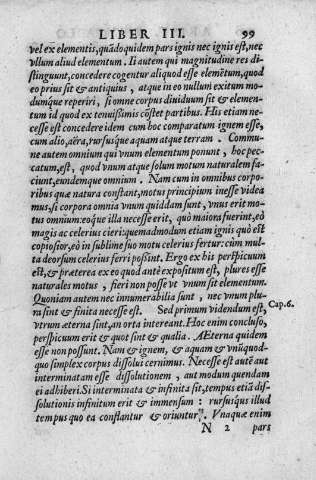 LIBER III. 99
vel ex elementis, quãdoquidem pars ignis nec ignis est, nec
vllum aliud elementum. Ii autem qui magnitudine res di
stinguunt, concedere cogentur aliquod esse elemẽtum, quod
eo prius sit & antiquius, atque in eo nullum exitum mo-
dumque reperiri, si omne corpus diuiduum sit & elemen-
tum id quod ex tenuissimis cõstet partibus. His etiam ne-
cesse est concedere idem cum hoc comparatum ignem esse,
cum alio, aëra, rursusque aquam atque terram. Commu-
ne autem omnium qui vnum elementum ponunt, hoc pec-
catum, est, quod vnum atque solum motum naturalem fa-
ciunt, eundemque omnium. Nam cum in omnibus corpo-
ribus quæ natura constant, motus principium inesse videa
mus, si corpora omnia vnum quiddam sunt, vnus erit mo-
tus omnium: eoque illa necesse erit, quò maiora fuerint, eò
magis ac celerius cieri: quemadmodum etiam ignis quò est
copiosior, eò in sublime suo motu celerius fertur: cùm mul-
ta deorsum celerius ferri possint. Ergo ex his perspicuum
est, & præterea ex eo quod antè expositum est, plures esse
naturales motus, fieri non posse vt vnum sit elementum.
Quoniam autem nec innumerabilia sunt, nec vnum plu-
ra sint & finita necesse est. Sed primum videndum est,
Cap. 6.
vtrum æterna sint, an orta intereant. Hoc enim concluso,
perspicuum erit & quot sint & qualia. AEterna quidem
esse non possunt. Nam & ignem, & aquam & vnũquod-
quo simplex corpus dissolui cernimus. Necesse est autẽ aut
interminatam esse dissolutionem, aut modum quendam
ei adhiberi. Si interminata & infinita sit, tempus etiã dis-
solutionis infinitum erit & immensum: rursúsque illud
tempus quo ea constantur & oriuntur. Vnaquæ enim
N 2 pars